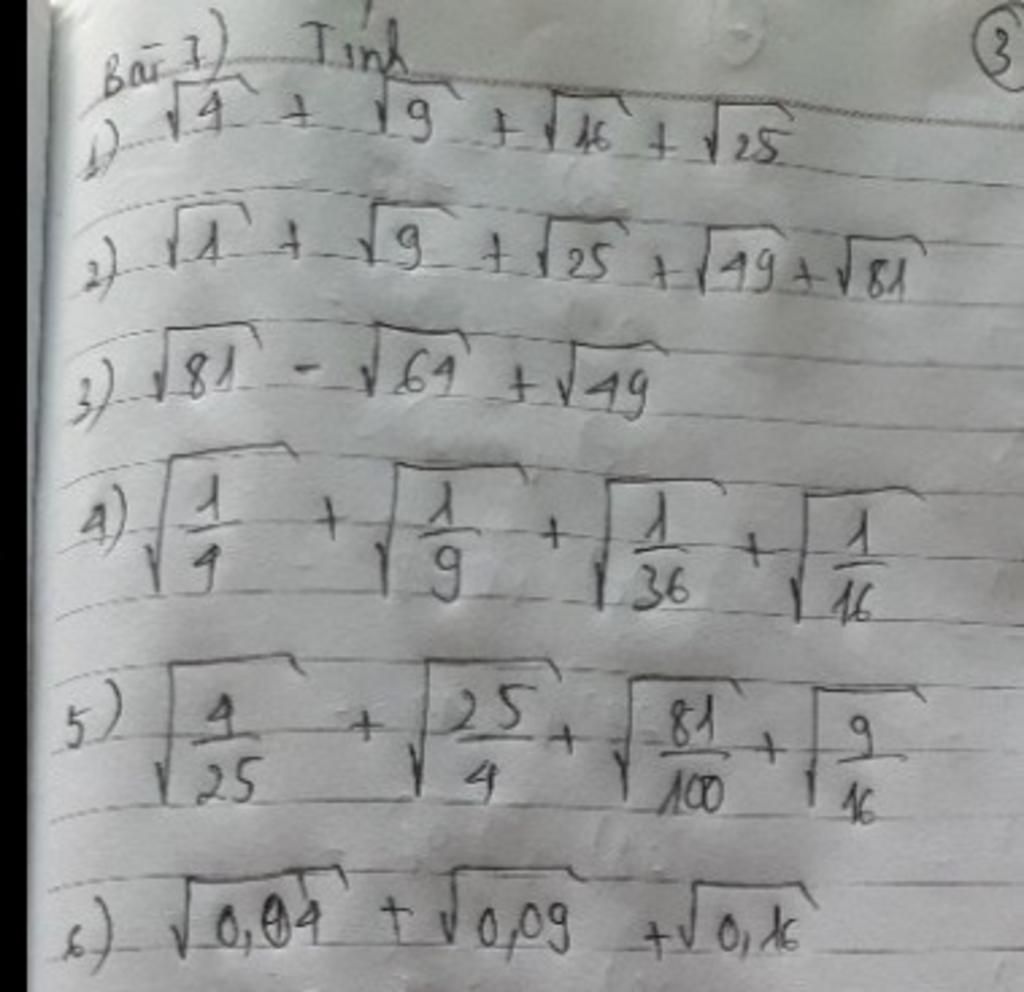 Bài 7) Tính
3
1) √4 + √9 + √16 + √25
2) √1 + √9 + √25 + √49 + √81
3) √81 - √64 + √49
4) √(1/4) + √(1/9) + √(1/36) + √(1/16)
5) √(4/25) + √(25/4) + √(81/100) + √(9/16)
6) √0,04 + √0,09 + √0,16